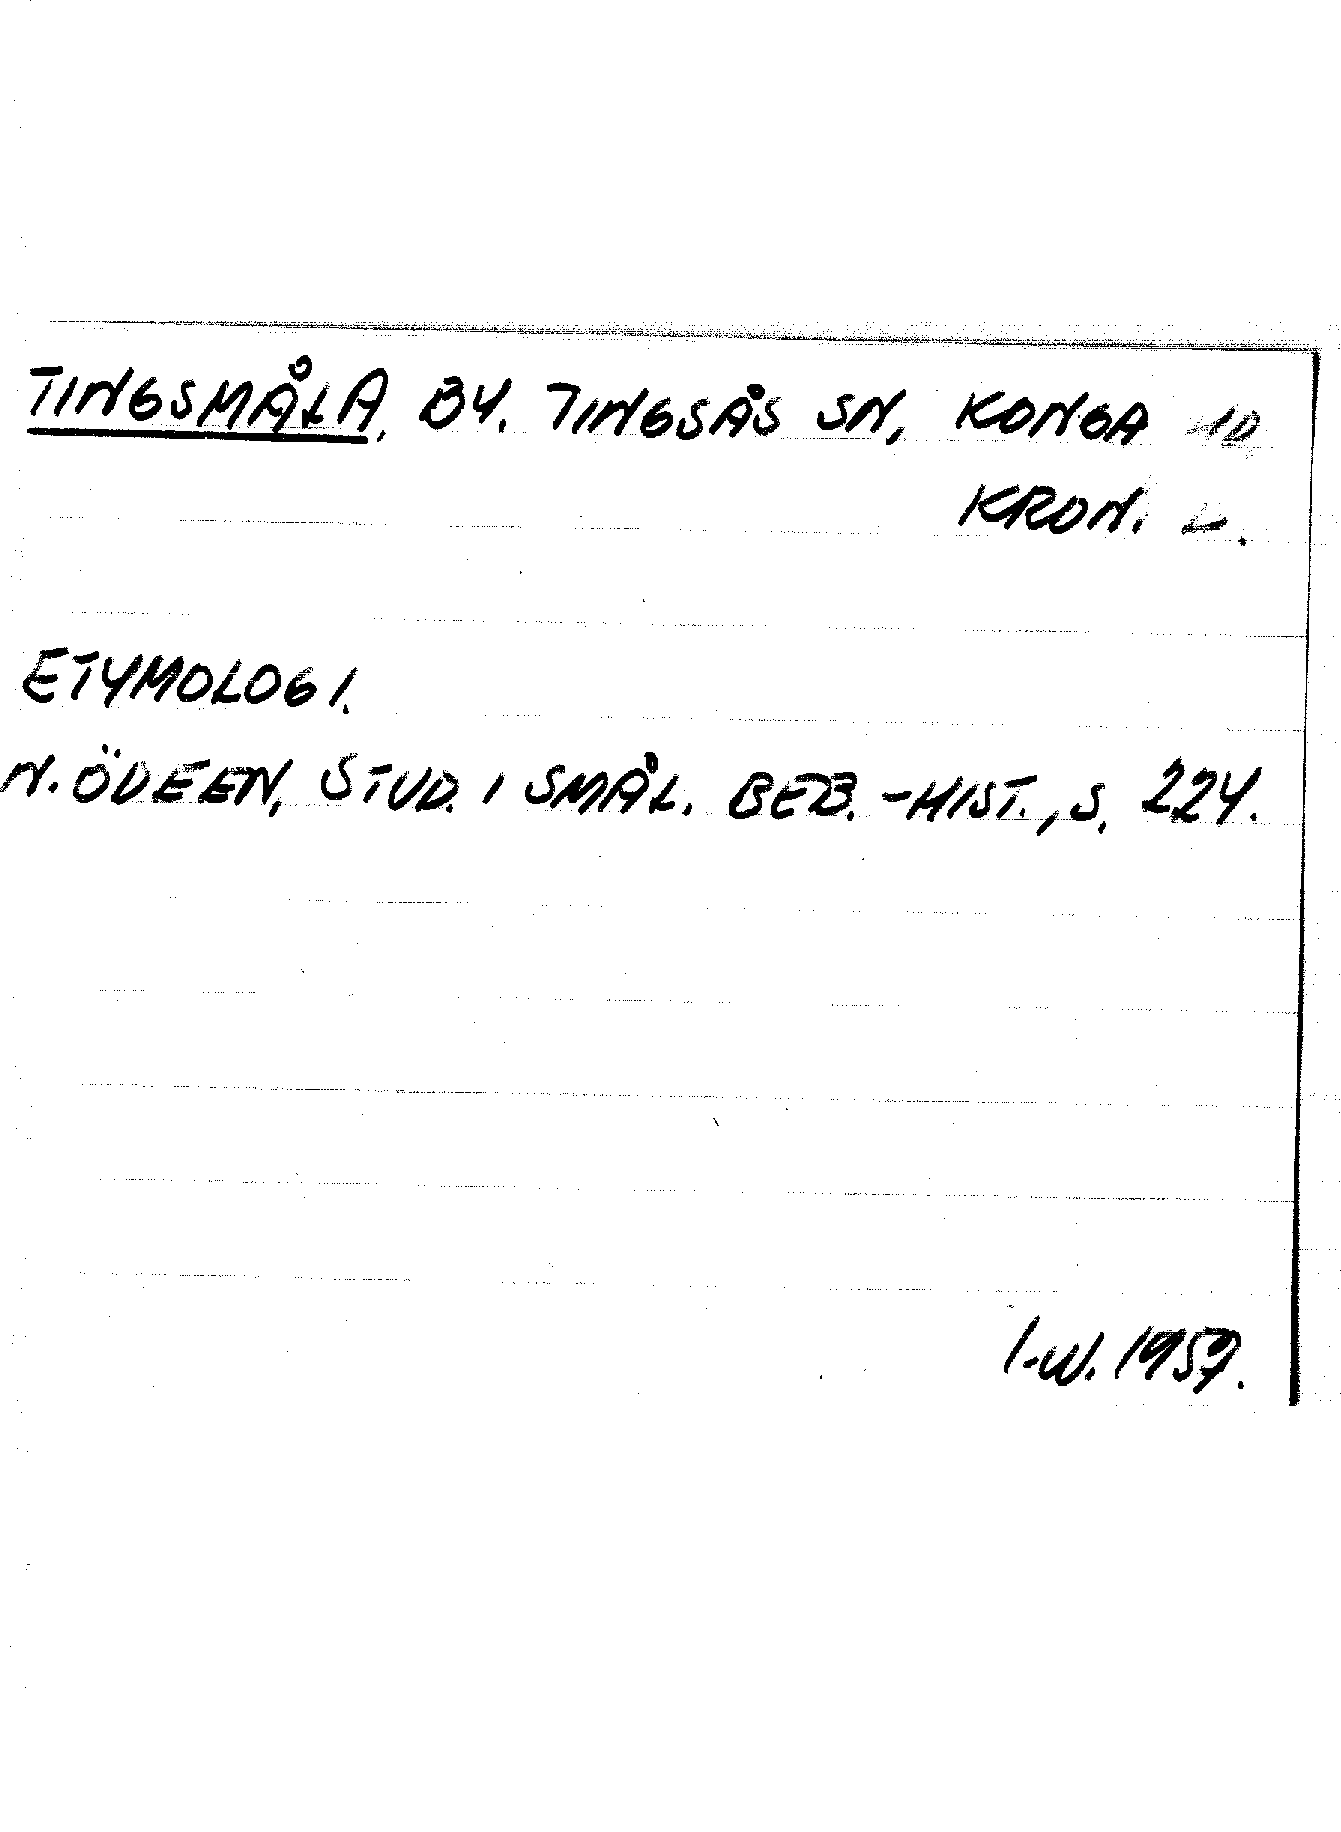 TINGSMÅLA, BY. TINGSÅS SN, KONGA HD
KRON. L.
ETYMOLOGI.
N. ÖDEEN, STUD. I SMÅL. BEB.-HIST., S. 224.
I-W. 1957.